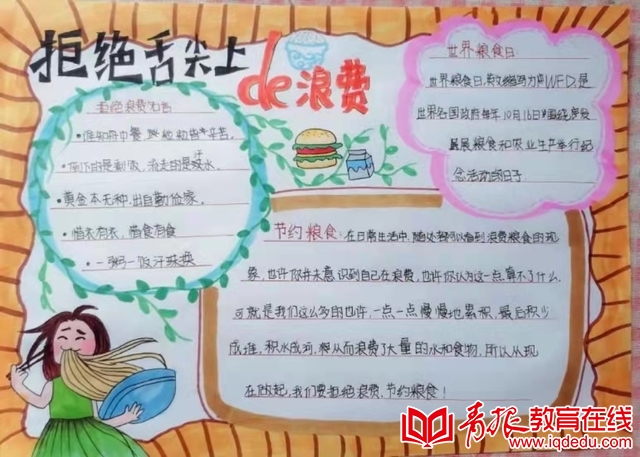 拒绝舌尖上de浪费
拒绝浪费粮食
·谁知盘中餐,粒粒皆辛苦。
·倒下的是剩饭,流走的是汗水。
·黄金本无种,出自勤俭家。
·惜衣有衣,惜食有食
·一粥一饭汗珠换
世界粮食日:
世界粮食日,英文缩写为WFD,是
世界各国政府每年10月16日围绕发
展粮食和农业生产举行纪
念活动的日子
节约粮食:在日常生活中,随处都可以看到浪费粮食的现
象,也许你并未意识到自己在浪费,也许你认为这一点算不了什么.
可就是我们这么多的也许,一点一点慢慢地累积,最后积少
成堆,积水成河,从而浪费了大量的水和食物,所以从现
在做起,我们要拒绝浪费,节约粮食!
青报教育在线
www.iqdedu.com